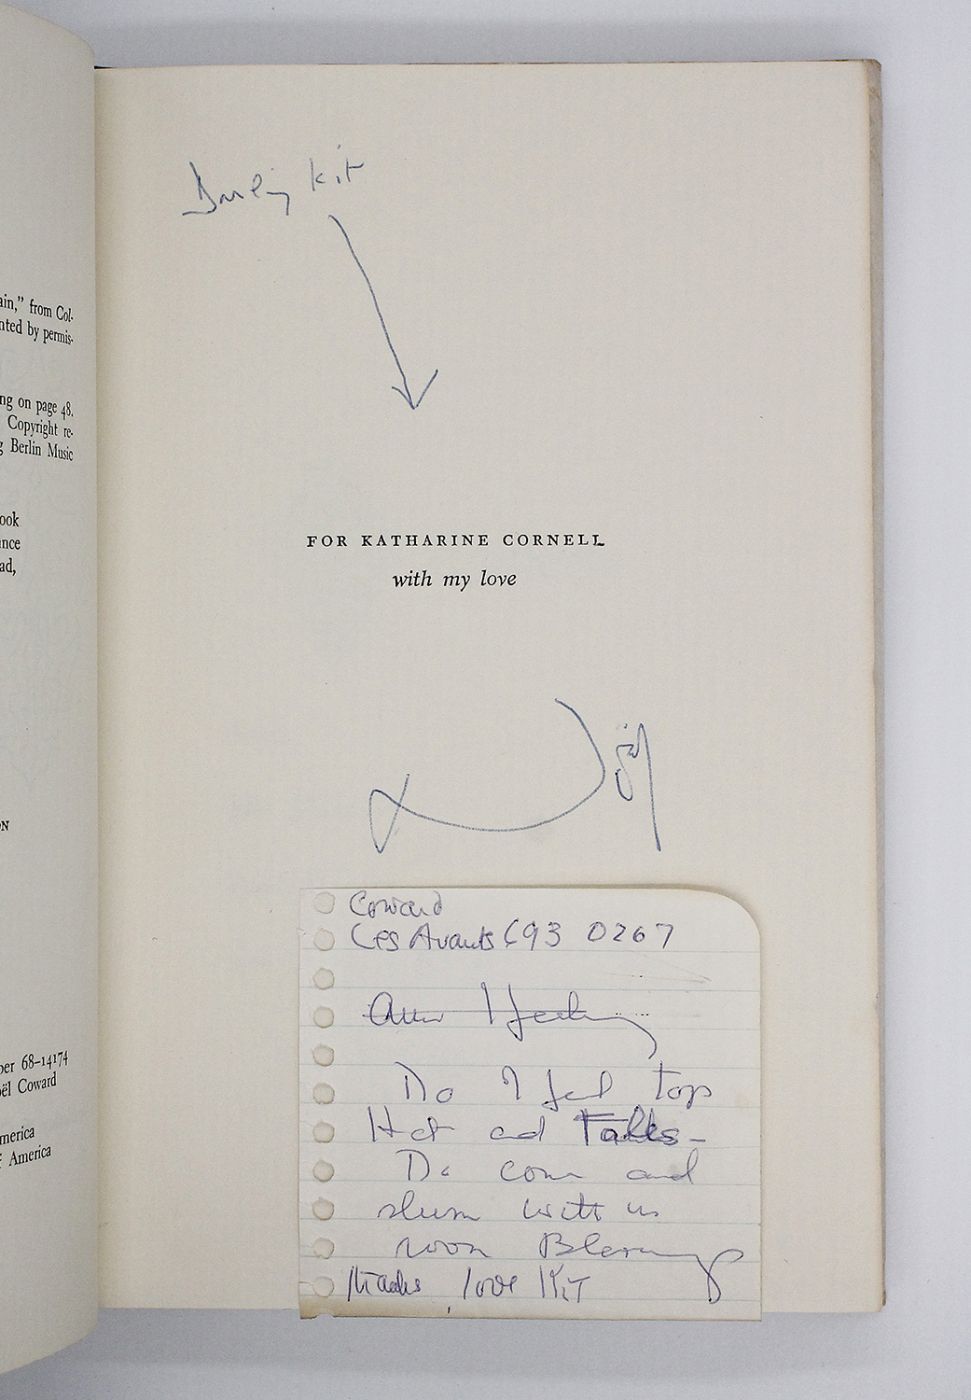 ain," from Col-
nted by permis-
ng on page 48.
Copyright re-
g Berlin Music
ook
ince
ad,
ON
ber 68-14174
oël Coward
merica
f America
Darling Kit
FOR KATHARINE CORNELL
with my love
Noël
Coward
Les Avants 693 0267
Do I feel top
Hat and Falls-
Do come and
slum with us
soon Blessings
thanks love KIT